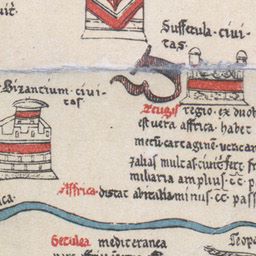 Suffetula · civi
tas ·
Bizantium · civi
tas
Zeugis regio · ex duob
est uera affrica · habet
metū cartaginē · uticam
milaria amplius · c̄c̄ · p
Affrica · distat ab italia minus · c̄c̄ · pass
Getulea mediteranea